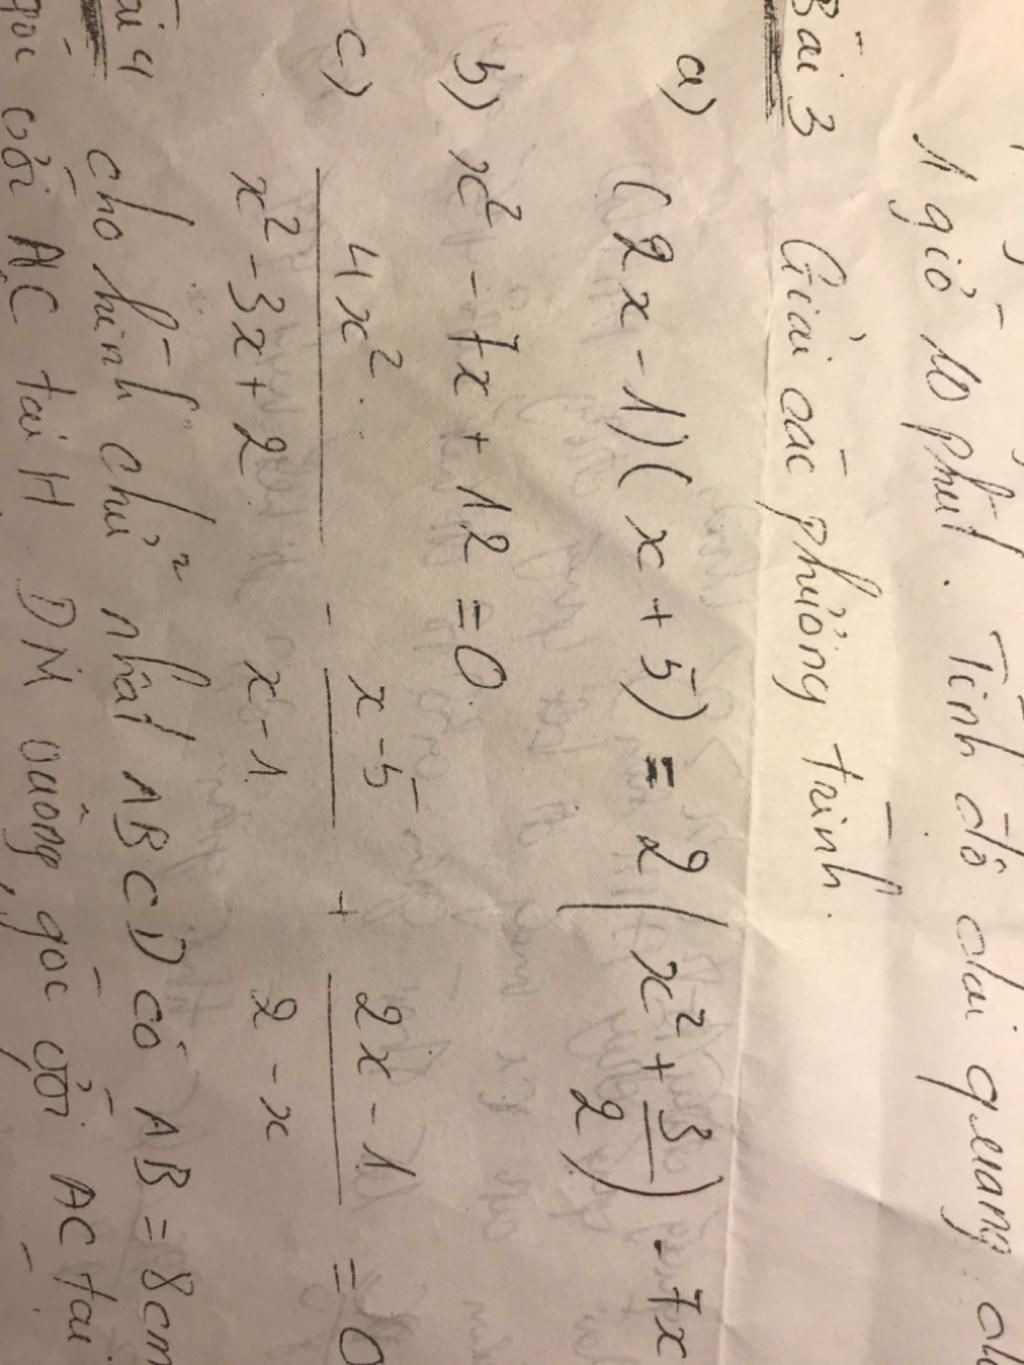 1 giờ 10 phút. Tính độ dài quãng
Bài 3 Giải các phương trình.
a) (2x - 1)(x + 5) = 2(x² + 3/2) - 7x
b) x² - 7x + 12 = 0
c) 4x²/(x² - 3x + 2) - (x - 5)/(x - 1) + (2x - 1)/(2 - x) = 0
cho hình chữ nhật ABCD có AB = 8cm
góc với AC tại H. DM vuông góc với AC tại